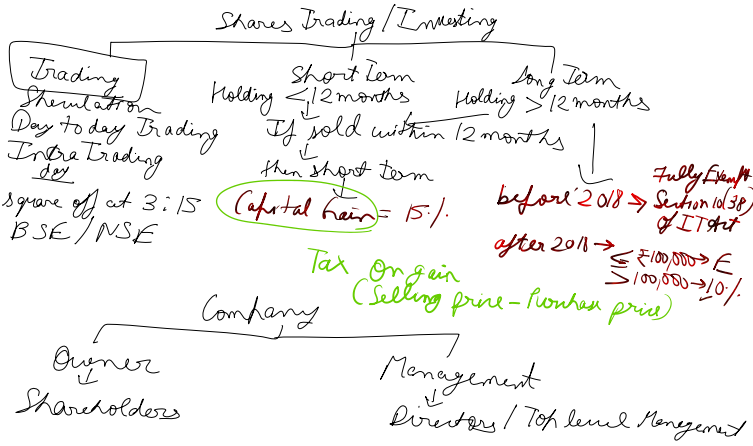 Shares Trading / Investing
Trading
Speculation
Day to day Trading
Intra day Trading
square off at 3:15
BSE / NSE
Short Term
Holding < 12 months
If sold within 12 months
then short term
Capital Gain = 15%
Long Term
Holding > 12 months
before 2018 → Fully Exempt
Section 10(38)
of IT Act
after 2018 →
≤ ₹100,000 → E
> 100,000 → 10%
Tax on gain
(Selling price - Purchase price)
Company
Owner
Shareholders
Management
Directors / Top level Management